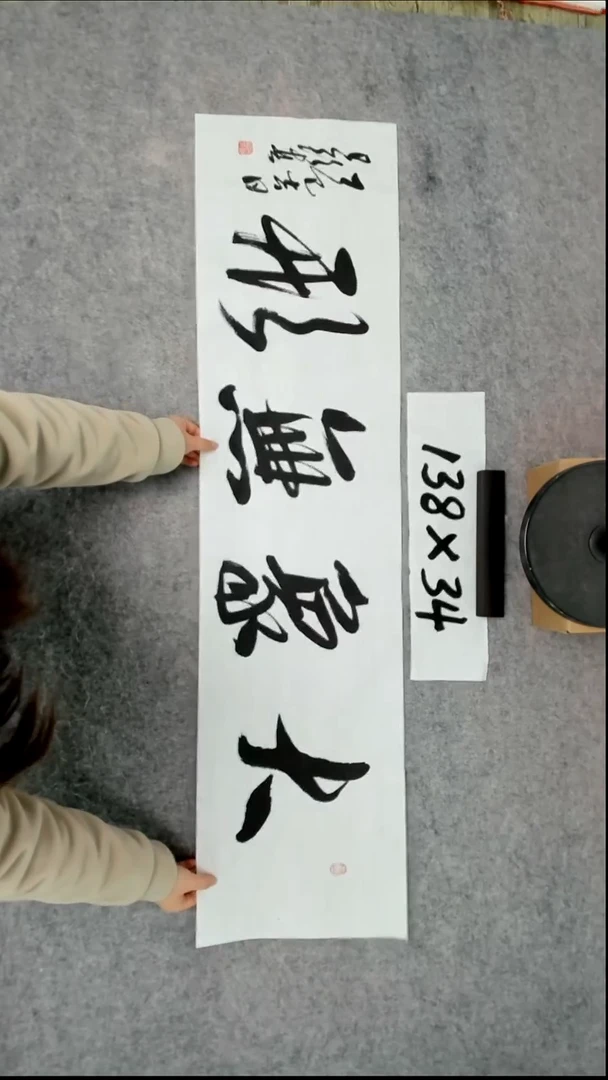 大象無形
138×34